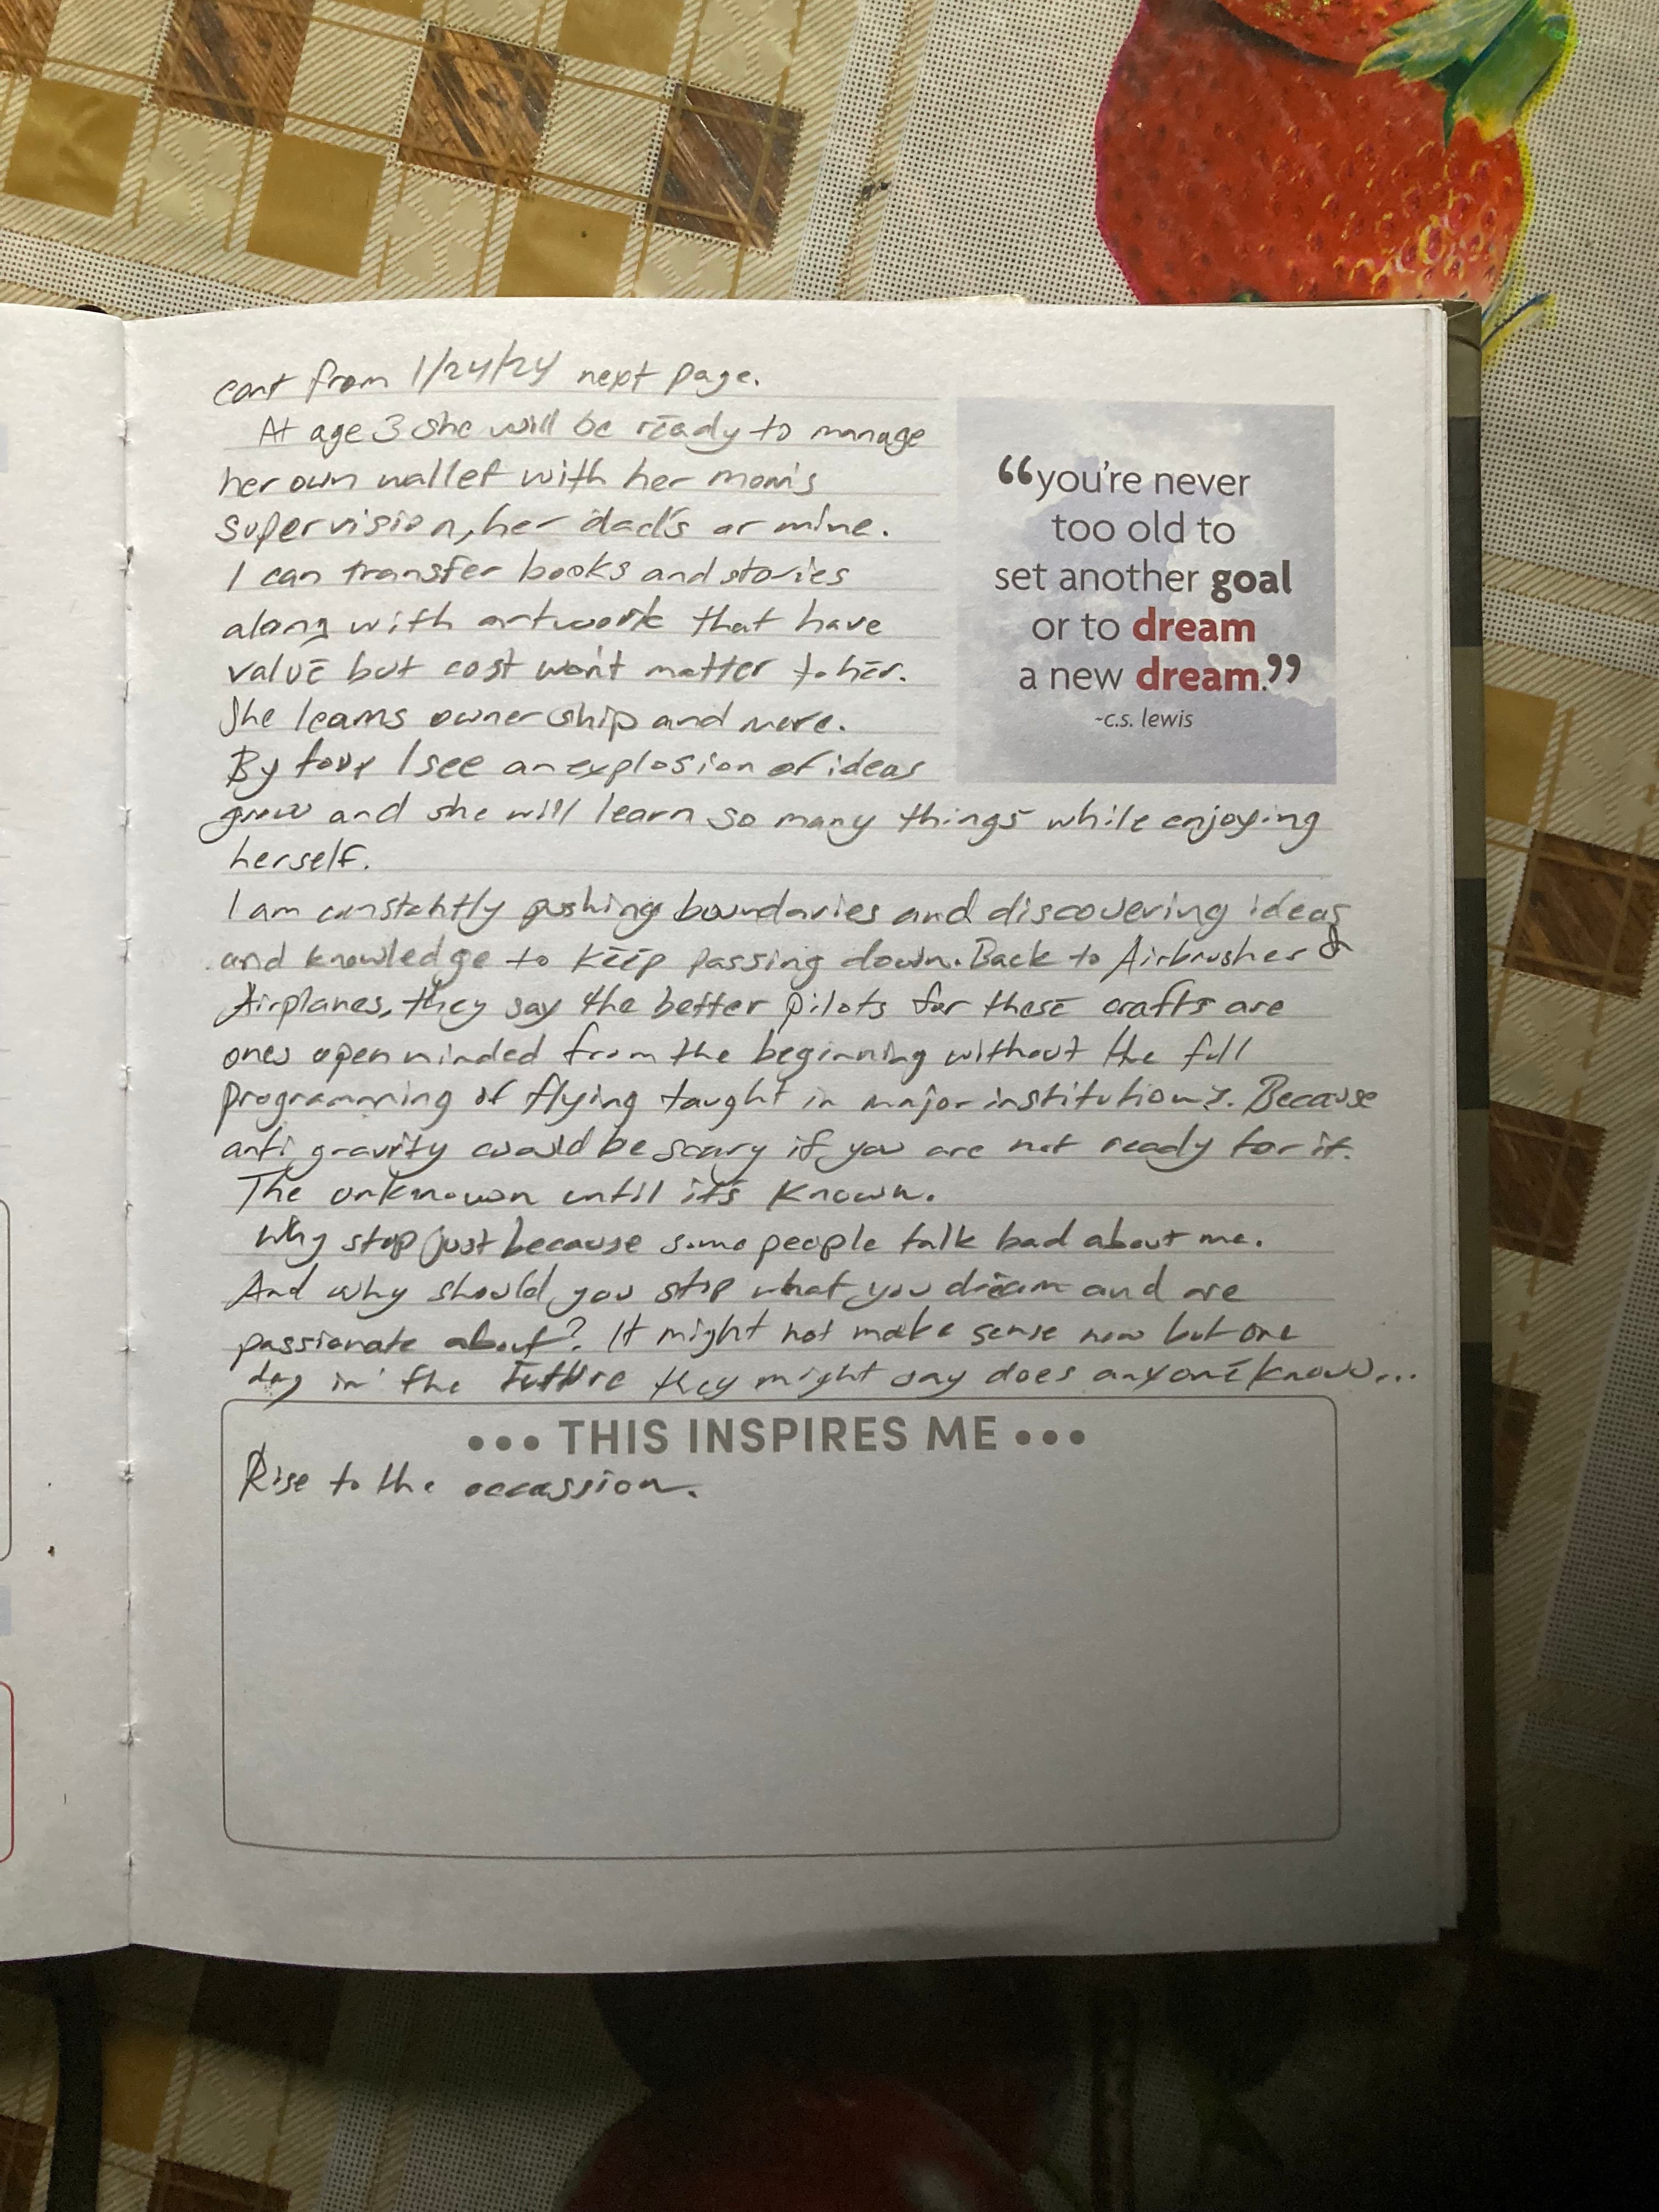 cont from 1/24/24 next page.
At age 3 she will be ready to manage
her own wallet with her mom's
supervision, her dad's or mine.
I can transfer books and stories
along with artwork that have
value but cost won't matter to her.
She learns ownership and more.
By four I see an explosion of ideas
grow and she will learn so many things while enjoying
herself.
I am constantly pushing boundaries and discovering ideas
and knowledge to keep passing down. Back to Airbrushes &
Airplanes, they say the better pilots for these crafts are
ones open minded from the beginning without the full
programming of flying taught in major institutions. Because
anti gravity could be scary if you are not ready for it.
The unknown until it's known.
Why stop just because some people talk bad about me.
And why should you stop what you dream and are
passionate about? It might not make sense now but one
day in the future they might say does anyone know...
“you're never
too old to
set another goal
or to dream
a new dream.”
-c.s. lewis
••• THIS INSPIRES ME •••
Rise to the occassion.